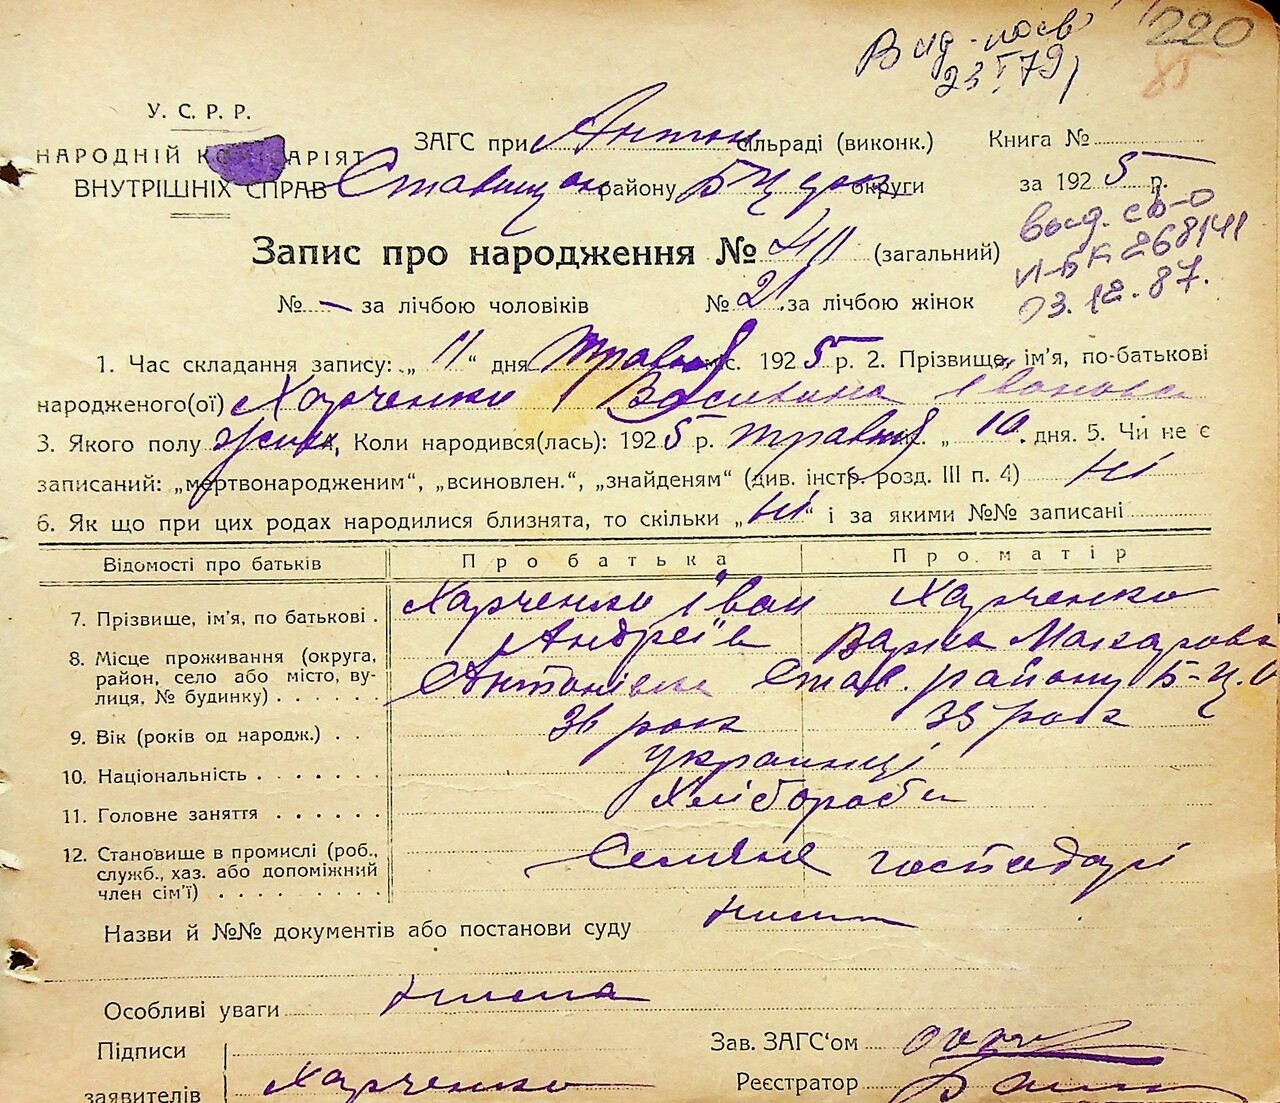 Вид. посв 220
23 I 79 85
У. С. Р. Р.
НАРОДНІЙ КОМІСАРІЯТ
ВНУТРІШНІХ СПРАВ
ЗАГС при Антон сільраді (виконк.) Книга №
Ставищан району БЦ округи за 1925 р.
вид. св-о
Запис про народження № 41 (загальний)
II-БК 268141
03.12.87.
№ — за лічбою чоловіків № 21 за лічбою жінок
1. Час складання запису: „ 11 “ дня травня міс. 1925 р. 2. Прізвище, ім'я, по-батькові
народженого(ої) Харченко Василина Іванова
3. Якого полу жін, Коли народився(лась): 1925 р. травня „ 10. дня. 5. Чи не є
записаний: „мертвонародженим“, „всиновлен.“, „знайденям“ (див. інстр. розд. III п. 4) Ні
6. Як що при цих родах народилися близнята, то скільки „ Ні “ і за якими №№ записані
Відомості про батьків Про батька Про матір
7. Прізвище, ім'я, по батькові . Харченко Іван Харченко
Андреїв Варка Макарова
8. Місце проживання (округа,
район, село або місто, ву-
лиця, № будинку) Антонівка Став. району Б-Ц. О
9. Вік (років од народж.) . . 36 рок 35 рок
10. Національність українці
11. Головне заняття Хлібороби
12. Становище в промислі (роб.,
служб., хаз. або допоміжний
член сім'ї) Селяне господарі
Назви й №№ документів або постанови суду нима
Особливі уваги нима
Підписи
заявителів Харченко
Зав. ЗАГС'ом
Реєстратор